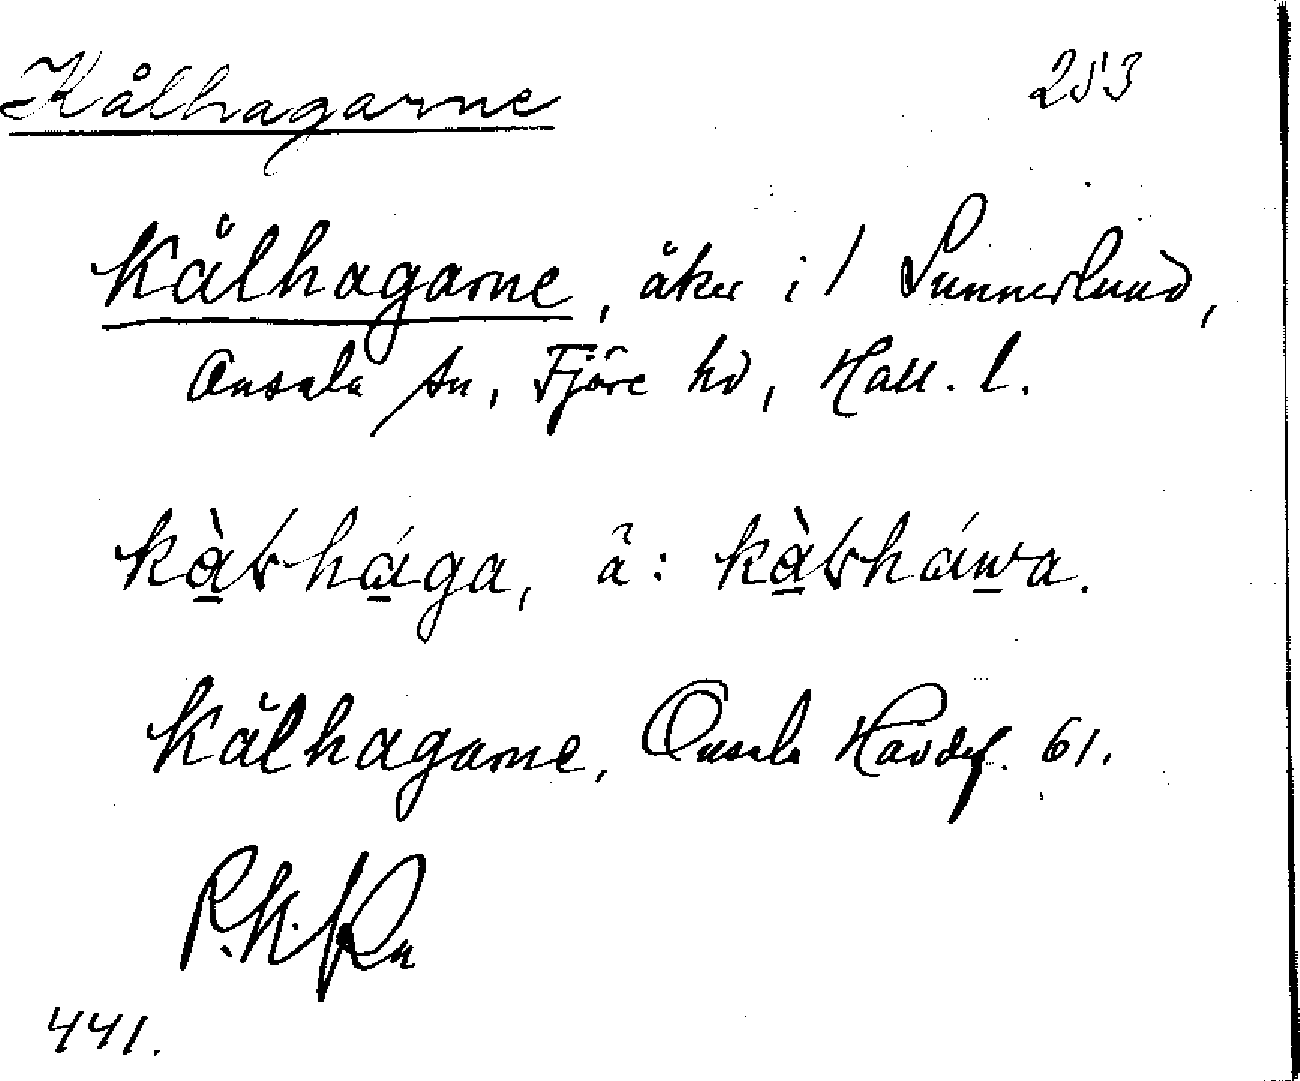 Kålhagarne 253
Kålhagarne, åker i 1 Sunnerlund,
Onsala sn, Fjäre hd, Hall. l.
kàɫhága, ä: kàɫháwa.
Kålhagarne, Onsala 61.
441.